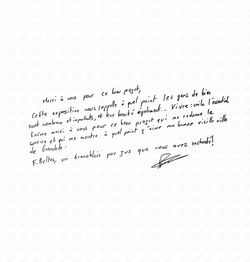 Merci à vous pour ce beau projet,
Cette exposition nous rappelle à quel point les gens de bien
sont nombreux et importants, et leur beauté Vivre : voilà l'essentiel
Encore merci à vous pour ce beau projet qui me redonne le
sourire et qui me montre à quel point j'aime ma bonne vieille ville
de Grenoble.
F. Bellas, un Grenoblois par jus que vous avez enchanté!